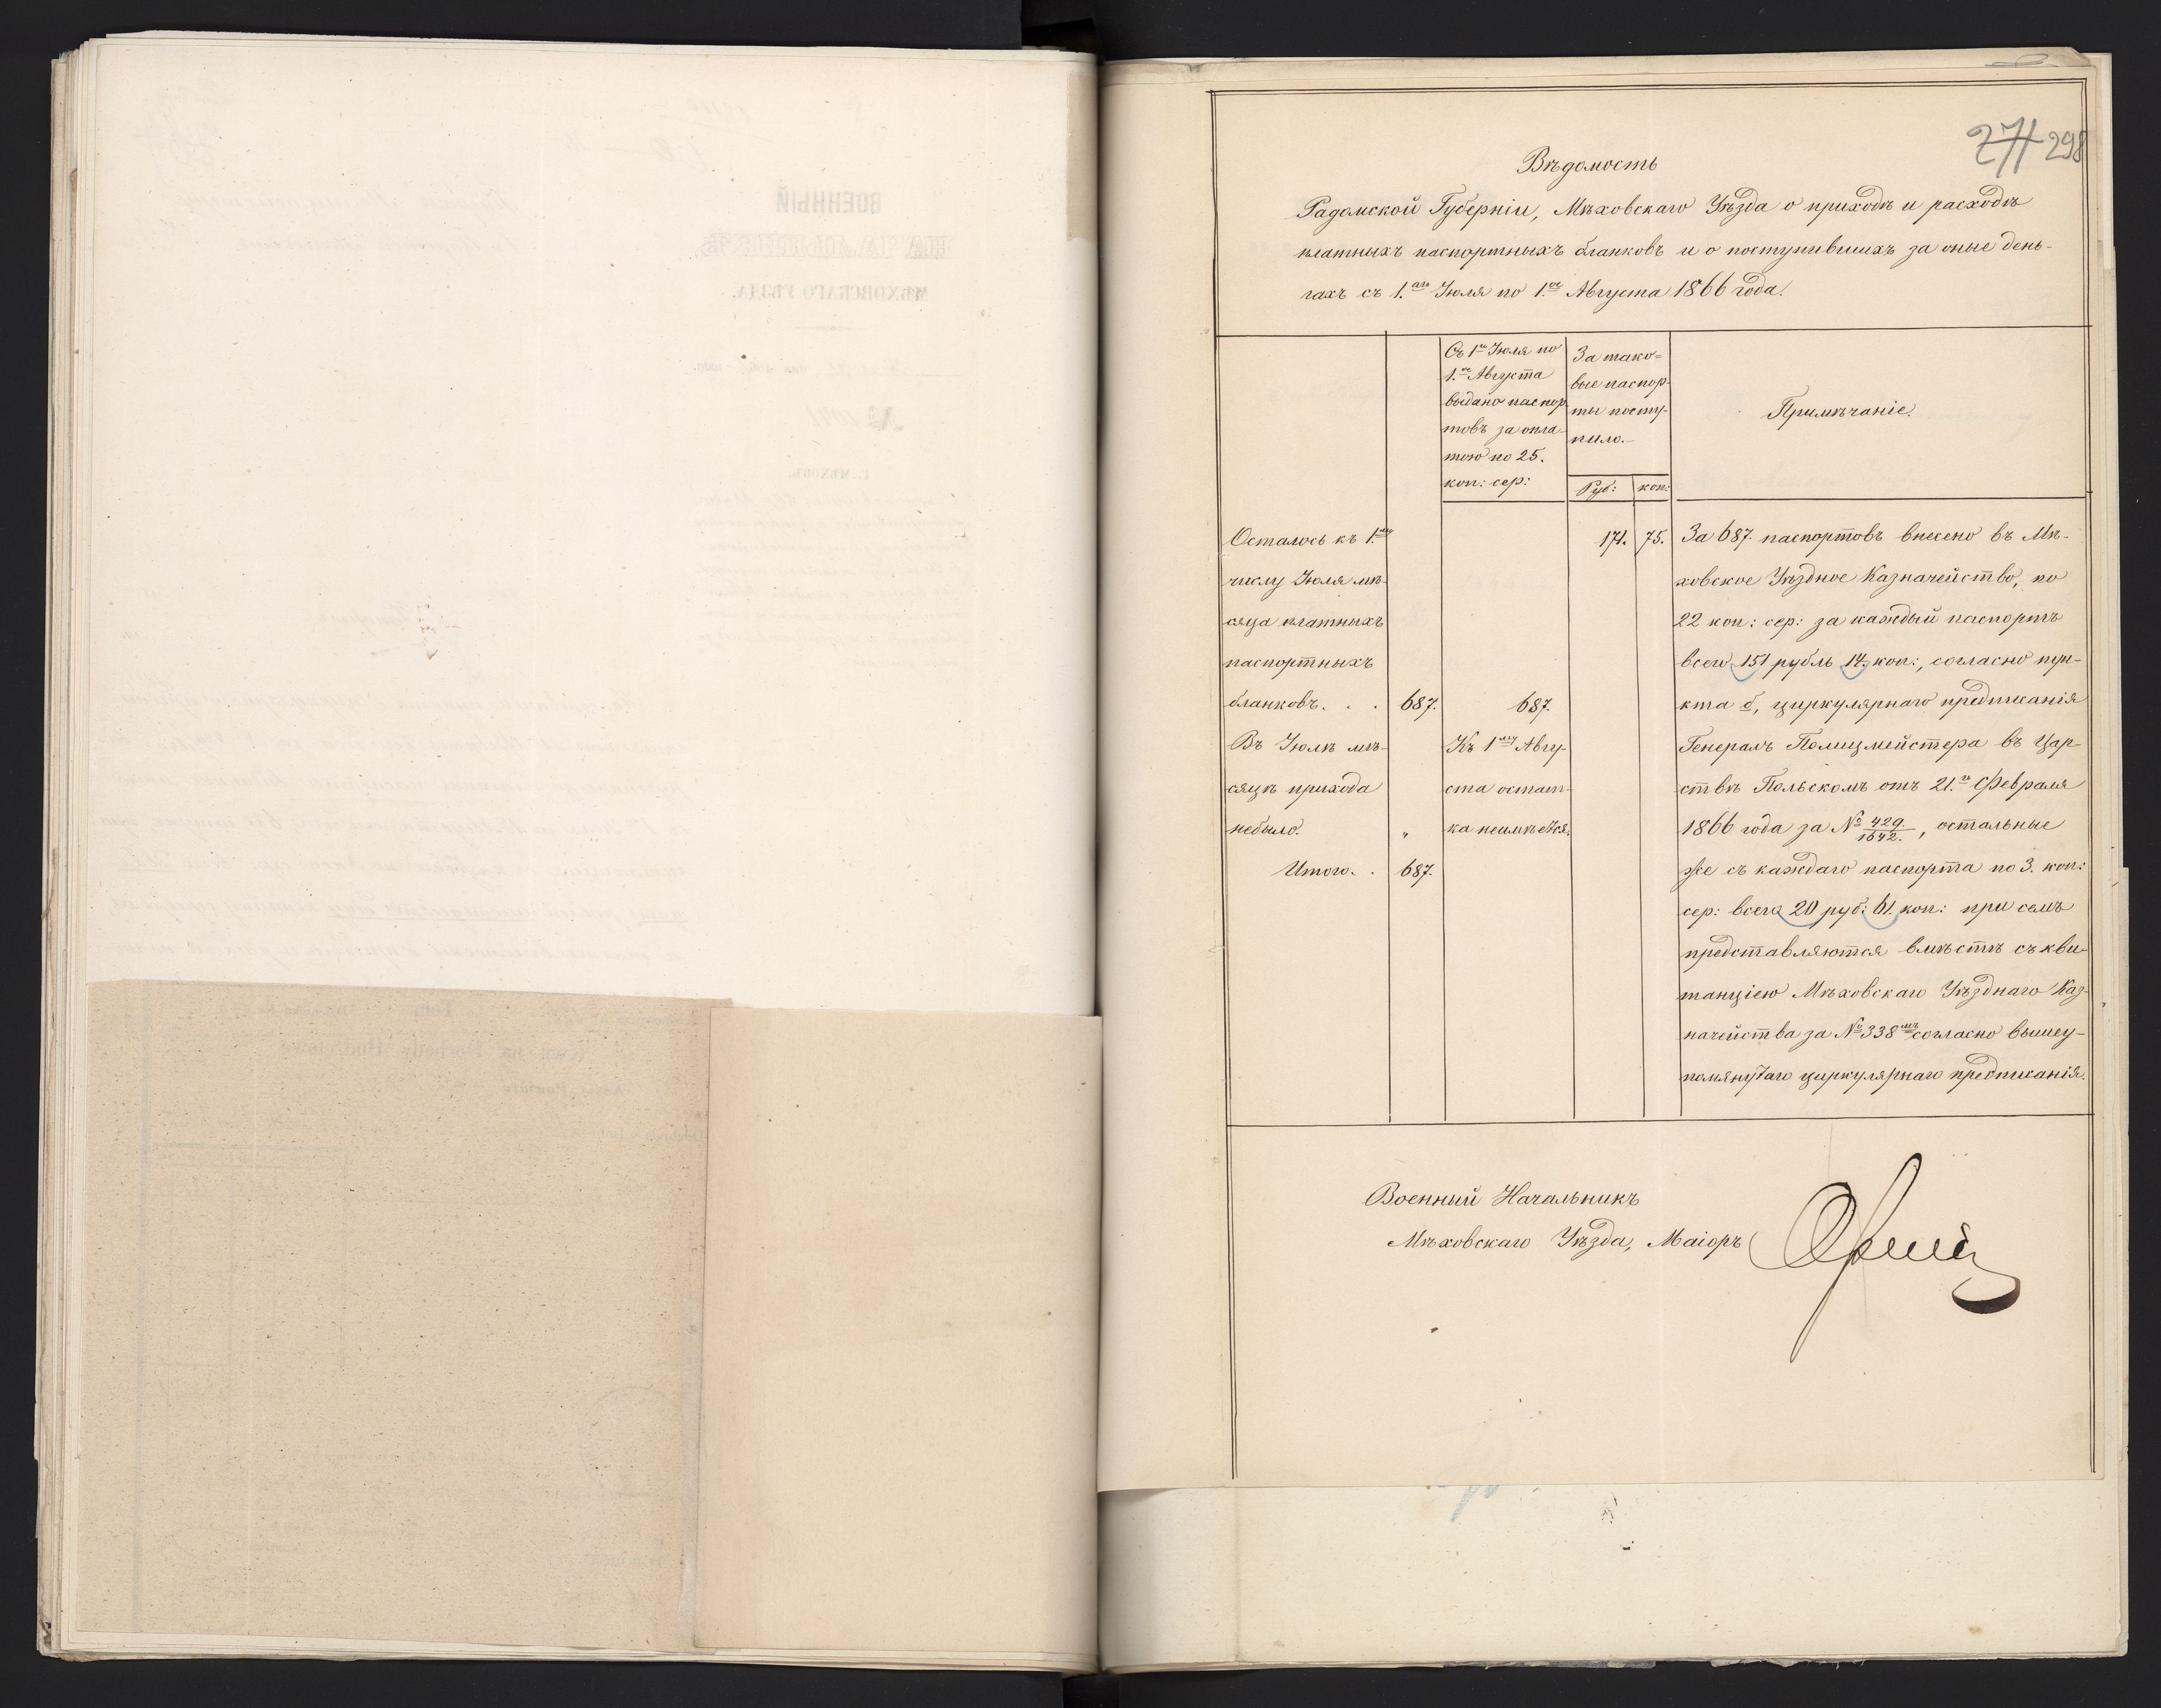 298
Вѣдомость
Радомской Губерніи, Мѣховскаго Уѣзда о приходѣ и расходѣ
платныхъ паспортныхъ бланковъ и о поступившихъ за оные день-
гахъ съ 1.го Іюля по 1.ое Августа 1866 года.
Съ 1го Іюля по
1.ое Августа
выдано паспор-
товъ за опла-
тою по 25.
коп: сер:
За тако-
вые паспор-
ты посту-
пило.
Руб: коп:
Примѣчаніе.
Осталось къ 1.му
числу Іюля мѣ-
сяца платныхъ
паспортныхъ
бланковъ. . . 687.
Въ Іюлѣ мѣ-
сяцѣ прихода
небыло. "
Итого. . 687.
687.
Къ 1му Авгу-
ста остат-
ка неимѣется.
171. 75.
За 687. паспортовъ внесено въ Мѣ-
ховское Уѣздное Казначейство, по
22 коп: сер: за каждый паспортъ
всего 151 рубль 14. коп:, согласно пун-
кта б, циркулярнаго предписанія
Генералъ Полицмейстера въ Цар-
ствѣ Польскомъ отъ 21.го Февраля
1866 года за № 429./1642., остальные
же съ каждаго паспорта по 3. коп:
сер: всего 20 руб: 61. коп: при семъ
представляются вмѣстѣ съ кви-
танціею Мѣховскаго Уѣзднаго Каз-
начейства за № 338мъ согласно вышеу-
помянутаго циркулярнаго предписанія.
Военный Начальникъ
Мѣховскаго Уѣзда, Маіоръ
ВОЕННЫЙ
НАЧАЛЬНИКЪ
МѢХОВСКАГО УѢЗДА.
Г. МѢХОВЪ.